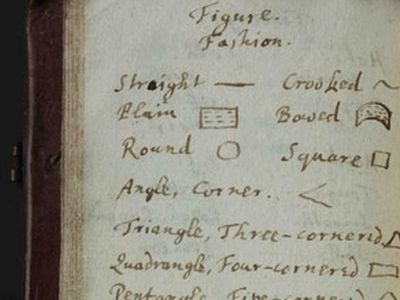 Figure.
Fashion.
Straight Crooked
Plain Bowed
Round Square
Angle, Corner.
Triangle, Three-cornerid
Quadrangle, Four-cornerid
Pentangle, Five-cornerid